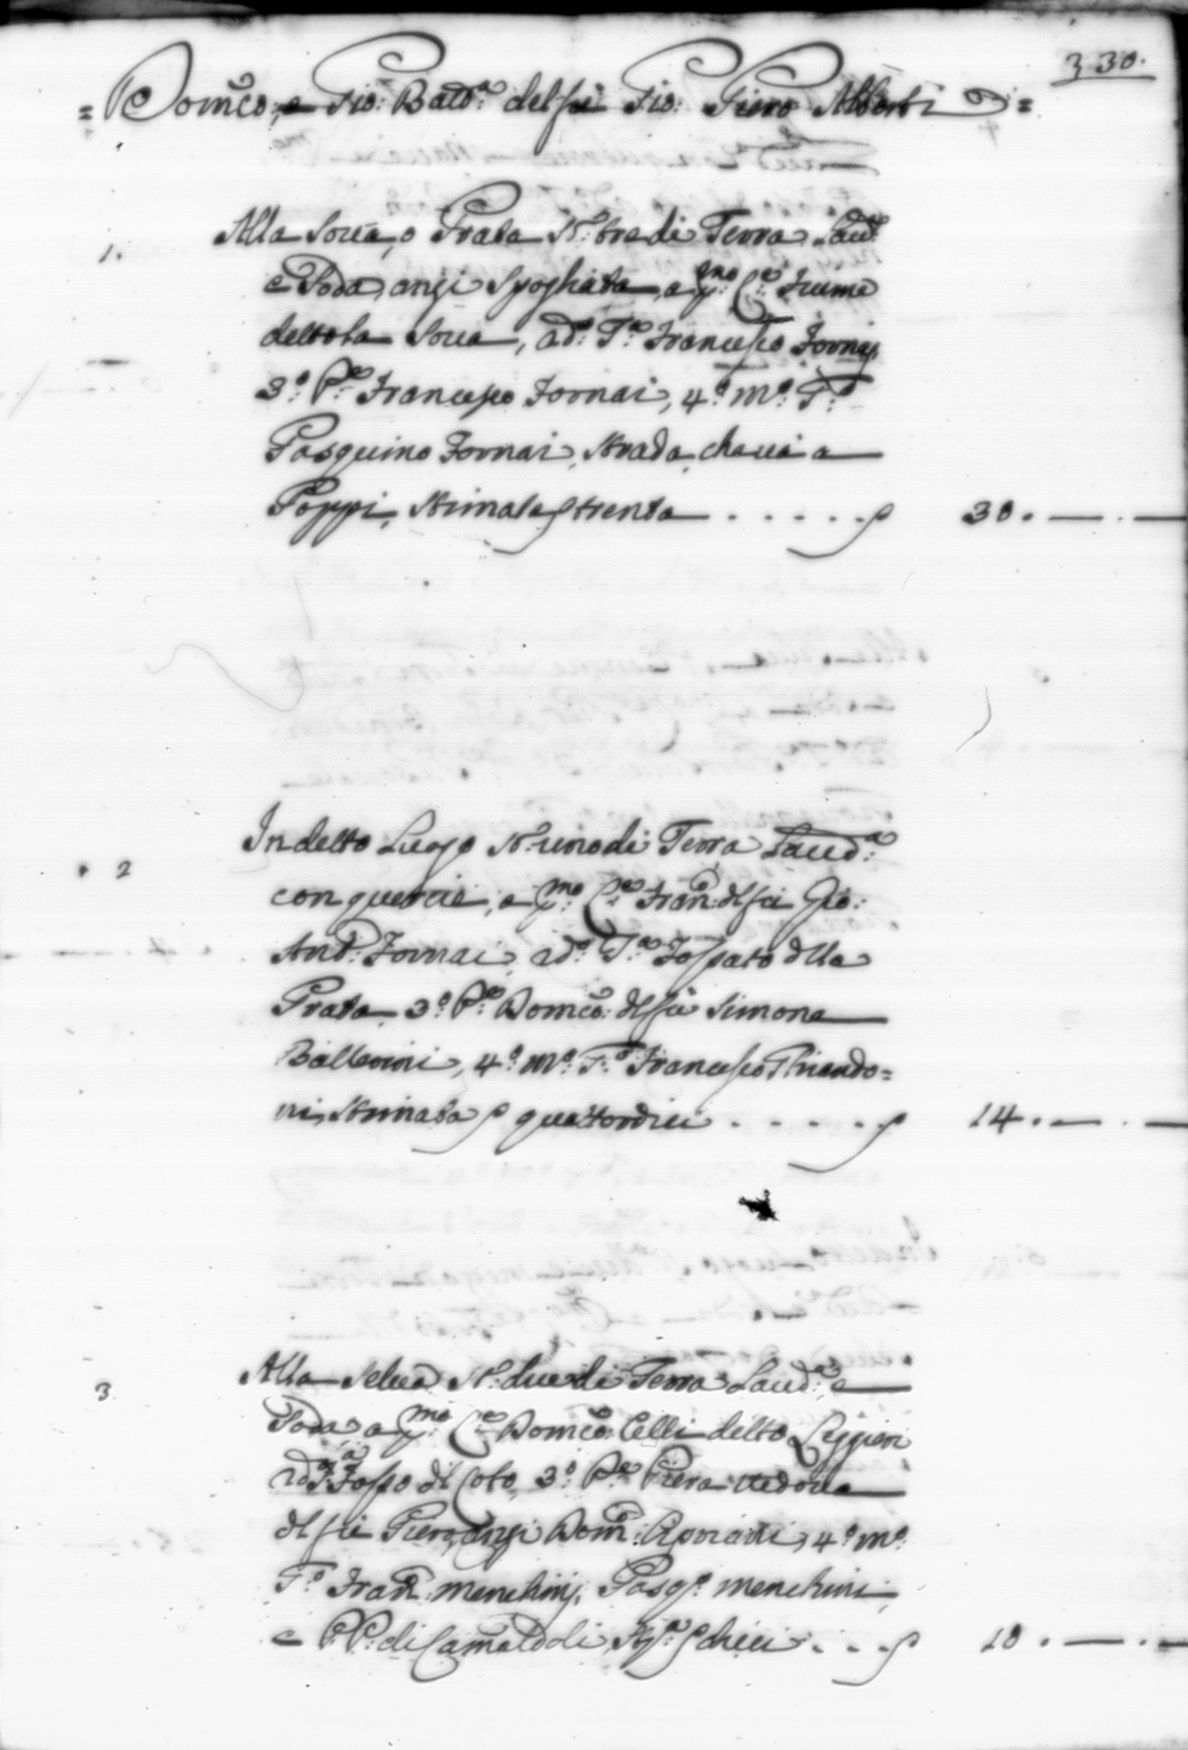 330.
= Domco, e Gio: Batta: del fu Gio: Piero Alberti =
1. Alla Sova, o Prata St: tre di Terra Laud:
e Soda, anzi Spogliata, a pmo: Ce: Fiume
detto la Sova, a do: Ta: Francesco Fornaj
3o: Pe: Francesco Fornai, 4o: mo: To:
Pasquino Fornai, Strada, che va a
Poppi, Stimata S trenta . . . . . S 30. — . —
2 In detto Luogo St: uno di Terra Laud:a
con quercie, a pmo: Ce: Fran: del fu Gio:
And: Fornai, 2do: Ta: Fossato della
Prata 3o: Pe: Domco: del fu Simone
Ballerini, 4o: mo: To: Francesco
ni, Stimata S quattordici . . . . . S 14. — . —
3 Alla Selva St: due di Terra Laud:a, e
Soda a pmo: Ce: Domco: Celli detto Leggieri
2do: Ta: Fosso di 3o: Pe: Piera vedova
del fu Piero, anzi Dom: Cipriani, 4o: mo:
To: Fran: Menchinj, Pasqo: Menchini,
e PP: di Camaldoli, S dieci . . . S 10. — . —